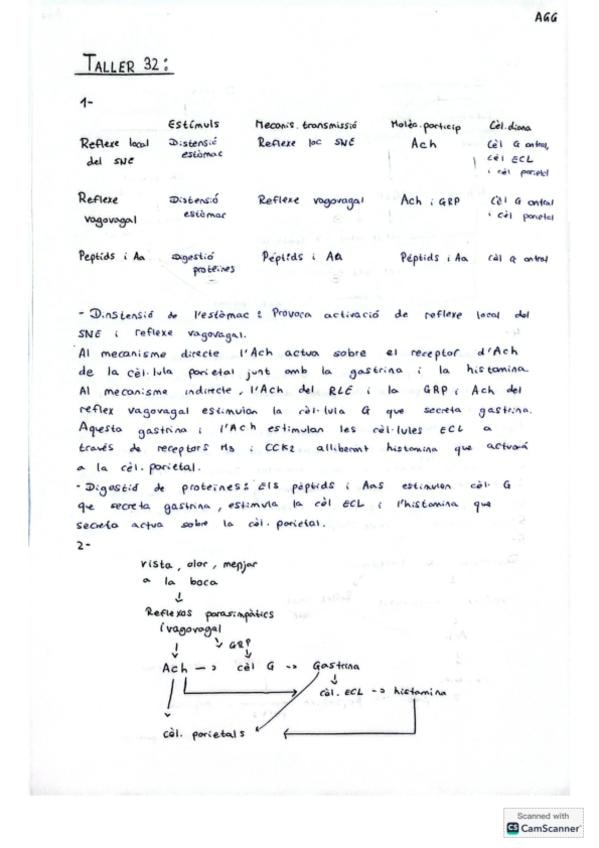 AGG
TALLER 32:
1-
Estímuls Mecanis. transmissió Molèc. particip Cèl. diana
Reflexe local del SNE Distensió estòmac Reflexe loc SNE Ach Cèl G antral, cèl ECL i cèl parietal
Reflexe vagovagal Distensió estòmac Reflexe vagovagal Ach i GRP Cèl G antral i cèl parietal
Peptids i Aa Digestió proteïnes Péptids i Aa Péptids i Aa cèl G antral
- Dinstensió de l'estòmac: Provoca activació de reflexe local del
SNE i reflexe vagovagal.
Al mecanisme directe l'Ach actua sobre el receptor d'Ach
de la cèl·lula parietal junt amb la gastrina i la histamina.
Al mecanisme indirecte, l'Ach del RLE i la GRP i Ach del
reflex vagovagal estimulan la cèl·lula G que secreta gastrina.
Aquesta gastrina i l'Ach estimulan les cèl·lules ECL a
través de receptors M3 i CCK2 alliberant histamina que actuará
a la cèl. parietal.
- Digestió de proteïnes: Els pèptids i Aas estimulen cèl. G
que secreta gastrina, estimula la cèl ECL i l'histamina que
secreta actua sobre la cèl. parietal.
2-
vista, olor, menjar
a la boca
↓
Reflexos parasimpàtics
i vagovagal
↓ ↘ GRP
Ach -> cèl G -> Gastrina
cèl. ECL -> histamina
cèl. parietals
Scanned with
CS CamScanner